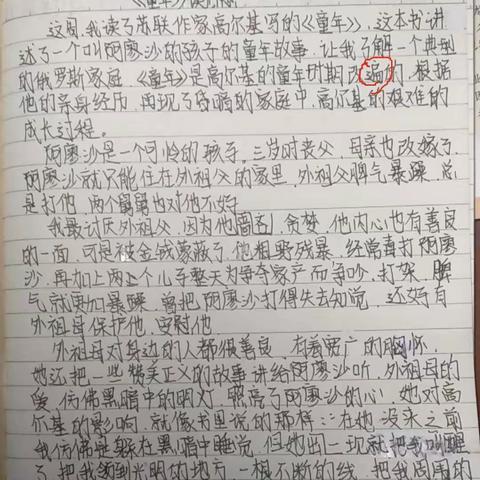 这周,我读了苏联作家高尔基写的《童年》,这本书讲
述了一个叫阿廖沙的孩子的童年故事,让我了解一个典型
的俄罗斯家庭,《童年》是高尔基的童年时期改编的,根据
他的亲身经历,再现了昏暗的家庭中,高尔基的艰难的
成长过程。
阿廖沙是一个可怜的孩子,三岁时丧父,母亲也改嫁了,
阿廖沙就只能住在外祖父的家里,外祖父脾气暴躁,总
是打他,两个舅舅也对他不好。
我最讨厌外祖父,因为他吝啬,贪婪,他内心也有善良
的一面,可是被金钱蒙蔽了,他粗野残暴,经常毒打阿廖
沙,再加上两个儿子整天为争夺家产而争吵、打架,脾
气就更加暴躁,曾把阿廖沙打得失去知觉,还好有
外祖母保护他,安慰他
外祖母对身边的人都很善良,有着宽广的胸怀,
她还把一些赞美正义的故事讲给阿廖沙听,外祖母的
爱,仿佛黑暗中的明灯,照亮了阿廖沙的心,她对高
尔基的影响,就像书里说的那样:在她没来之前
我仿佛是躲在黑暗中睡觉,但她出一现就把我叫醒
了,把我领到光明的地方,一根不断的线,把我周围的